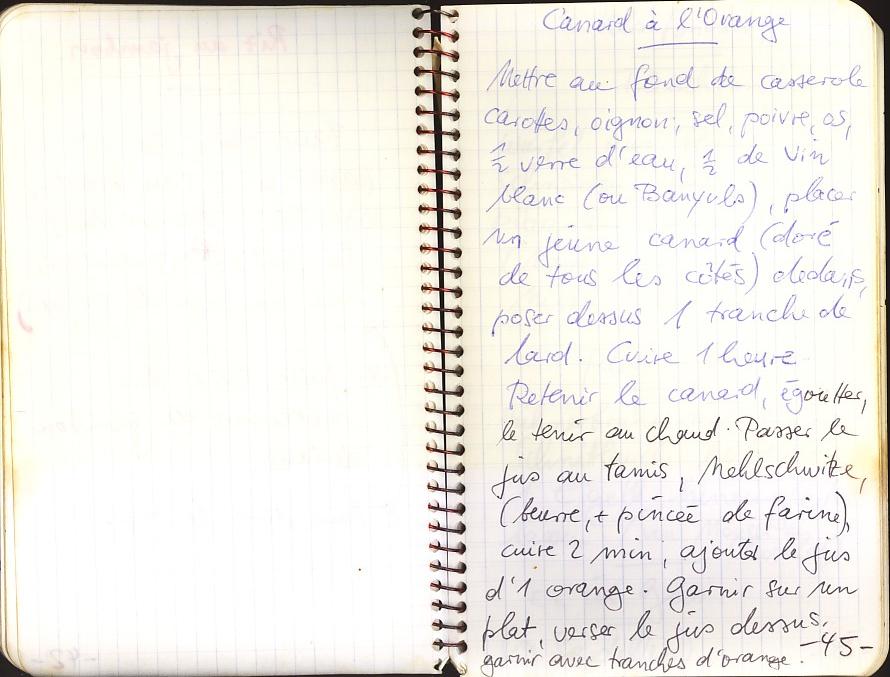 Canard à l'Orange
Mettre au fond de casserole
carottes, oignon, sel, poivre, os,
½ verre d'eau, ½ de vin
blanc (ou Banyuls), placer
un jeune canard (doré
de tous les côtés) dedans,
poser dessus 1 tranche de
lard. Cuire 1 heure
Retenir le canard, égoutter,
le tenir au chaud. Passer le
jus au tamis, Mehlschwitze,
(beurre, + pincée de farine),
cuire 2 min, ajouter le jus
d'1 orange. Garnir sur un
plat, verser le jus dessus.
garnir avec tranches d'orange.
-45-